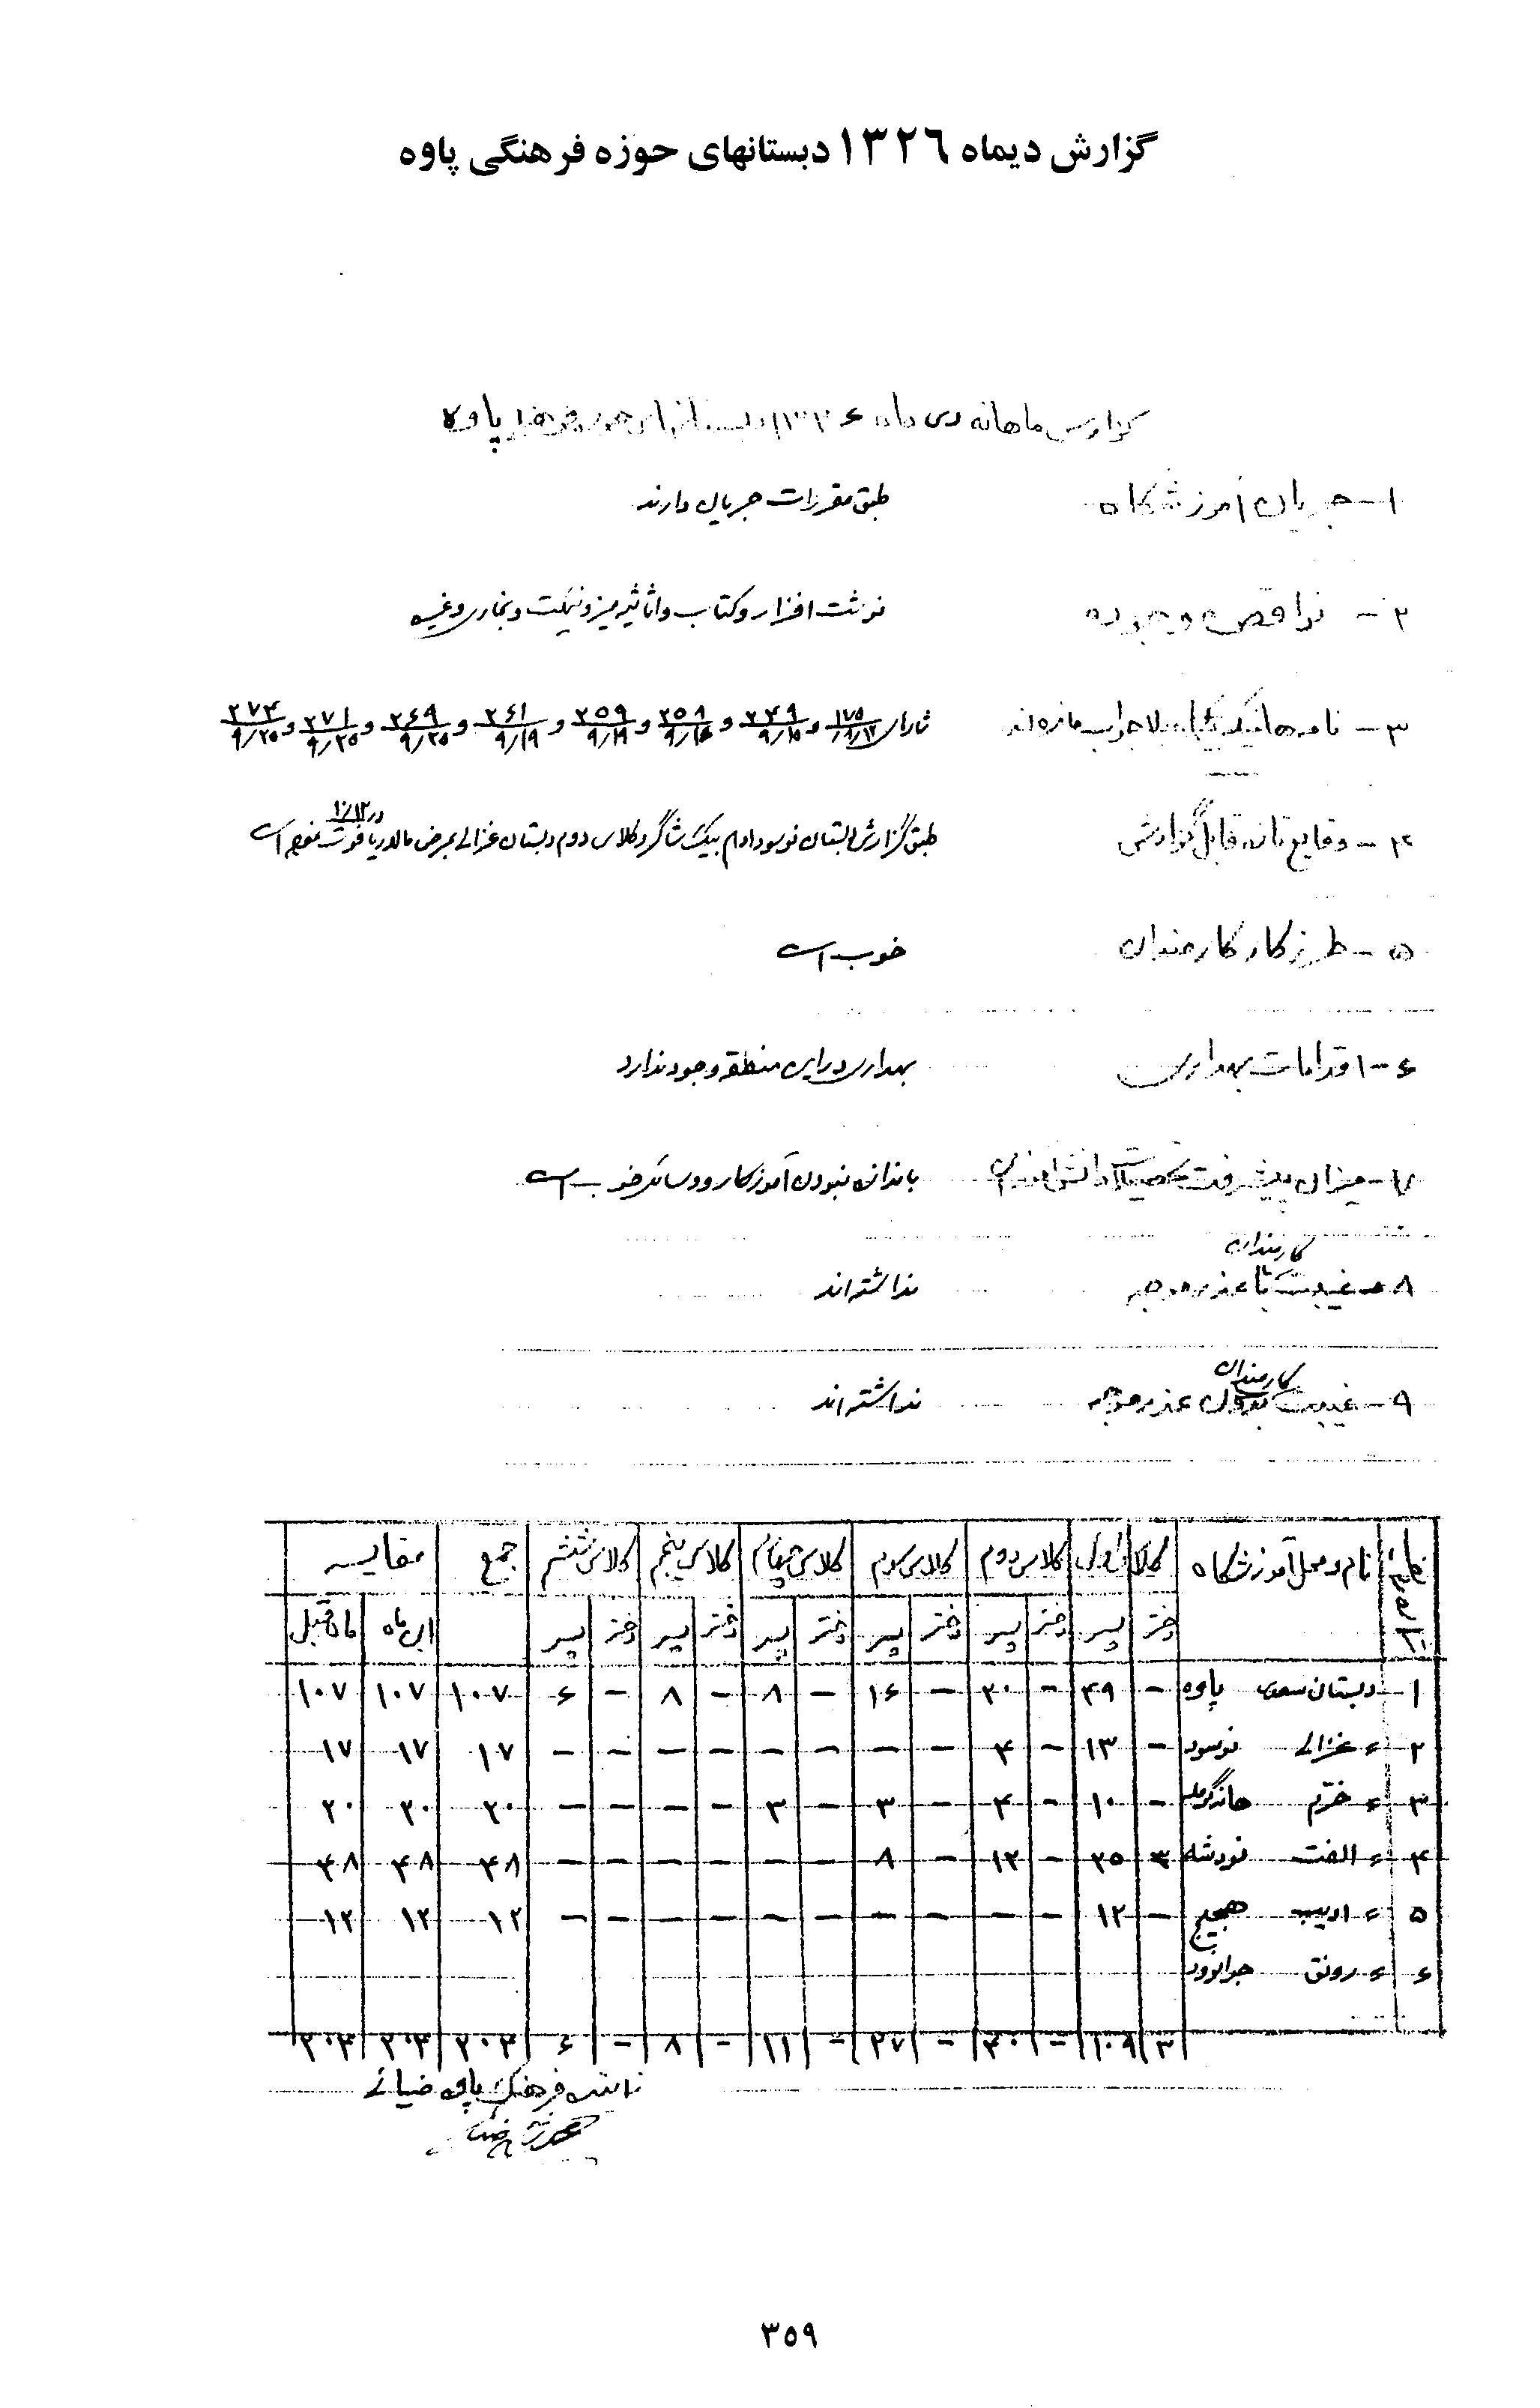 گزارش دیماه ۱۳۲۶ دبستانهای حوزه فرهنگی پاوه
گزارش ماهانه دی ماه ۱۳۲۶ دبستانهای حوزه فرهنگی پاوه
۱- جریان آموزشگاه طبق مقررات جریان دارند
۲- نواقص موجوده نوشت افزار و کتاب و اثاثیه میز و نیمکت و بخاری و غیره
۳- نامه هائیکه بلاجواب مانده اند ۱۷۵ ۹/۱۲ و ۲۴۹ ۹/۱۵ و ۲۵۸ ۹/۱۶ و ۲۵۹ ۹/۱۹ و ۲۶۱ ۹/۱۹ و ۲۶۹ ۹/۲۵ و ۲۷۱ ۹/۲۵ و ۲۷۴ ۹/۲۵
۴- وقایع تازه قابل گزارش طبق گزارش دبستان نوسود یک شاگرد کلاس دوم دبستان غزالی بمرض مالاریا در ۱۰/۱۲ فوت نموده است
۵- طرز کار کارمندان خوب است
۶- اقدامات بهداری بهداری در این منطقه وجود ندارد
۷- میزان پیشرفت تحصیلات دانش آموزان باندازه نبودن آموزگار و وسائل خوب است
۸- غیبت کارمندان با عذر موجه نداشته اند
۹- غیبت کارمندان بدون عذر موجه نداشته اند
نام و محل آموزشگاه کلاس اول کلاس دوم کلاس سوم کلاس چهارم کلاس پنجم کلاس ششم جمع مقایسه
دختر پسر دختر پسر دختر پسر دختر پسر دختر پسر دختر پسر این ماه ماه قبل
۱ دبستان سعدی پاوه - ۴۹ - ۲۰ - ۱۶ - ۸ - ۸ - ۶ ۱۰۷ ۱۰۷ ۱۰۷
۲ ” غزالی نوسود - ۱۳ - ۴ - - - - - - - - ۱۷ ۱۷ ۱۷
۳ ” خرم خانه گرمله - ۱۰ - ۴ - ۳ - ۳ - - - - ۲۰ ۲۰ ۲۰
۴ ” الفت نودشه ۳ ۲۵ - ۱۲ - ۸ - - - - - - ۴۸ ۴۸ ۴۸
۵ ” ادیب هجیج - ۱۲ - - - - - - - - - - ۱۲ ۱۲ ۱۲
۶ ” رونق جوانرود
۳ ۱۰۹ - ۴۰ - ۲۷ - ۱۱ - ۸ - ۶ ۲۰۴ ۲۰۴ ۲۰۴
نماینده فرهنگ پاوه ضیائی
۳۵۹